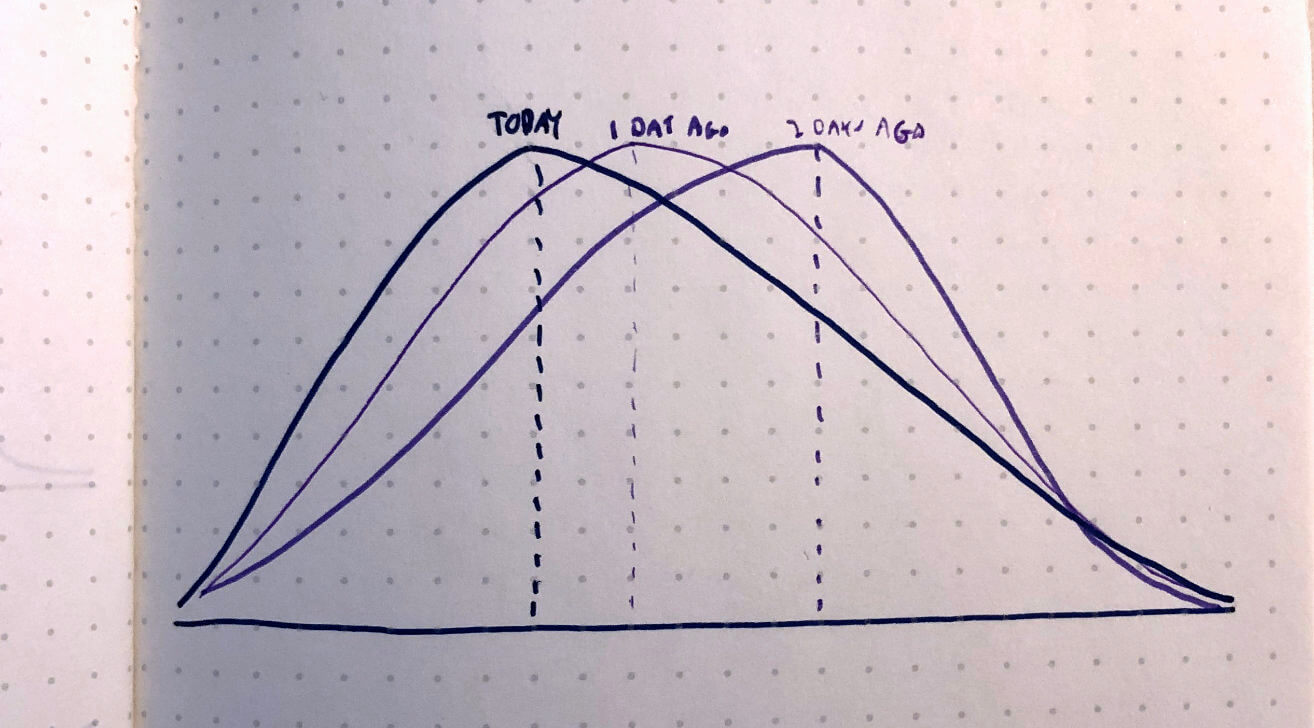 TODAY
1 DAY AGO
2 DAYS AGO